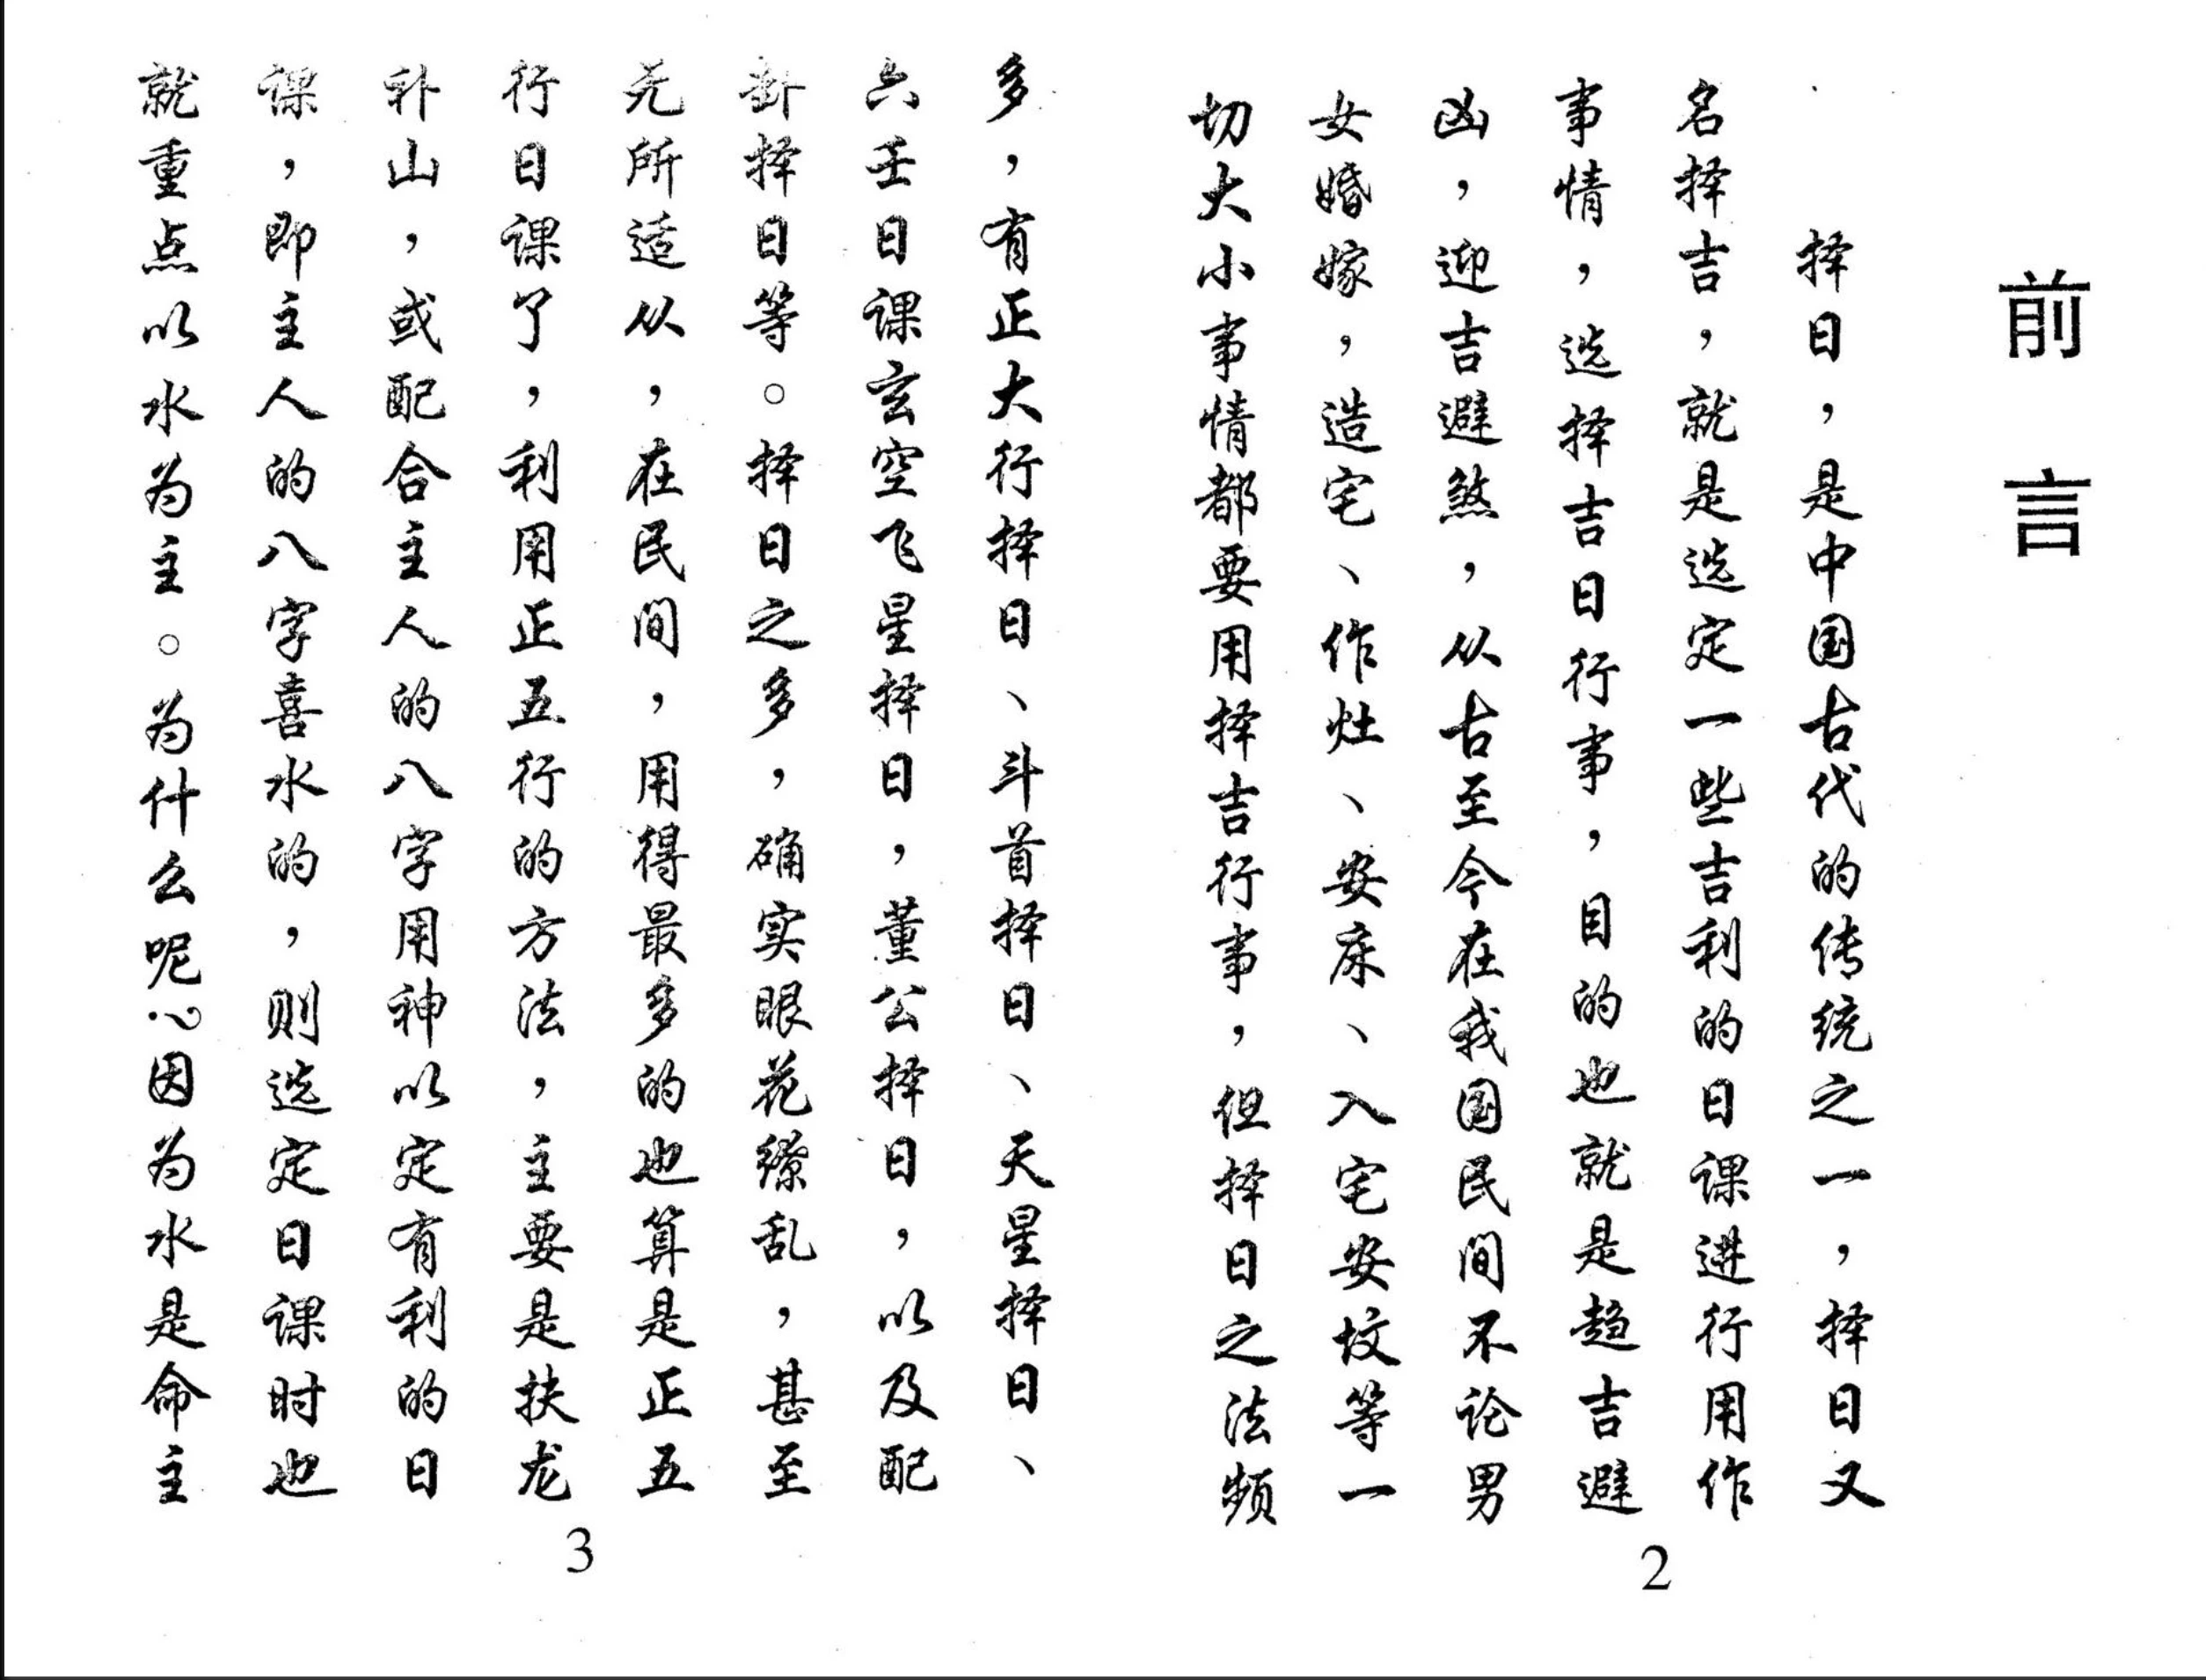 前言
择日，是中国古代的传统之一，择日又
名择吉，就是选定一些吉利的日课进行用作
事情，选择吉日行事，目的也就是趋吉避
凶，迎吉避煞，从古至今在我国民间不论男
女婚嫁，造宅、作灶、安床、入宅安坟等一
切大小事情都要用择吉行事，但择日之法频
2
多，有正大行择日、斗首择日、天星择日、
六壬日课玄空飞星择日，董公择日，以及配
卦择日等。择日之多，确实眼花缭乱，甚至
无所适从，在民间，用得最多的也算是正五
行日课了，利用正五行的方法，主要是扶龙
补山，或配合主人的八字用神以定有利的日
课，即主人的八字喜水的，则选定日课时也
就重点以水为主。为什么呢？因为水是命主
3